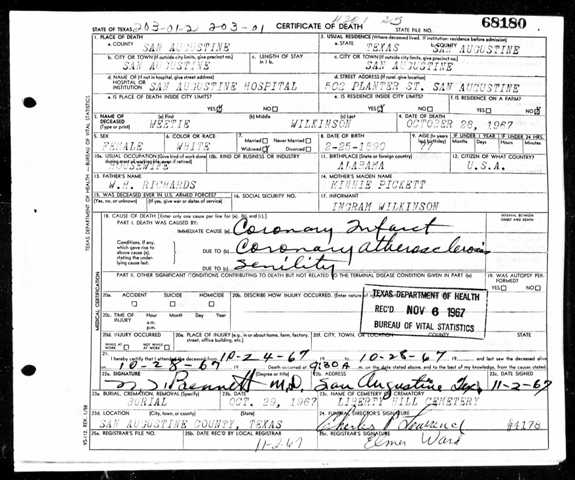 STATE OF TEXAS 203-01-2 203-01 CERTIFICATE OF DEATH STATE FILE NO. 68180
1. PLACE OF DEATH 2. USUAL RESIDENCE (Where deceased lived. If institution: residence before admission)
a. COUNTY SAN AUGUSTINE a. STATE TEXAS b. COUNTY SAN AUGUSTINE
b. CITY OR TOWN (If outside city limits, give precinct no.) c. LENGTH OF STAY in 1 b. c. CITY OR TOWN (If outside city limits, give precinct no.)
SAN AUGUSTINE SAN AUGUSTINE
d. NAME OF (If not in hospital, give street address) d. STREET ADDRESS (If rural, give location)
HOSPITAL OR INSTITUTION SAN AUGUSTINE HOSPITAL 502 PLANTER ST. SAN AUGUSTINE
e. IS PLACE OF DEATH INSIDE CITY LIMITS? YES NO e. IS RESIDENCE INSIDE CITY LIMITS? YES NO f. IS RESIDENCE ON A FARM? YES NO
3. NAME OF DECEASED (Type or print) (a) First (b) Middle (c) Last 4. DATE OF DEATH
WILKINSON OCTOBER 28, 1967
5. SEX 6. COLOR OR RACE 7. Married Never Married 8. DATE OF BIRTH 9. AGE (In years last birthday) IF UNDER 1 YEAR IF UNDER 24 HRS.
FEMALE WHITE Widowed Divorced 2-25-1890 77 Months Days Hours Min.
10a. USUAL OCCUPATION (Give kind of work done during most of working life, even if retired) 10b. KIND OF BUSINESS OR INDUSTRY 11. BIRTHPLACE (State or foreign country) 12. CITIZEN OF WHAT COUNTRY?
HOUSEWIFE ALABAMA U.S.A.
13. FATHER'S NAME 14. MOTHER'S MAIDEN NAME
W.H. RICHARDS MINNIE PICKETT
15. WAS DECEASED EVER IN U.S. ARMED FORCES? 16. SOCIAL SECURITY NO. 17. INFORMANT
(If yes, give war or dates of service) INGRAM WILKINSON
18. CAUSE OF DEATH [Enter only one cause per line for (a), (b), and (c).] INTERVAL BETWEEN ONSET AND DEATH
PART I. DEATH WAS CAUSED BY:
IMMEDIATE CAUSE (a) Coronary Infarct
Conditions, if any, which gave rise to above cause (a), stating the underlying cause last.
DUE TO (b) Coronary atherosclerosis
DUE TO (c) Senility
PART II. OTHER SIGNIFICANT CONDITIONS CONTRIBUTING TO DEATH BUT NOT RELATED TO THE TERMINAL DISEASE CONDITION GIVEN IN PART I(a) 19. WAS AUTOPSY PERFORMED? YES NO
20a. ACCIDENT SUICIDE HOMICIDE 20b. DESCRIBE HOW INJURY OCCURRED.
TEXAS DEPARTMENT OF HEALTH
REC'D NOV 6 1967
BUREAU OF VITAL STATISTICS
20c. TIME OF INJURY Hour Month Day Year a.m. p.m.
20d. INJURY OCCURRED WHILE AT WORK NOT WHILE AT WORK 20e. PLACE OF INJURY (e.g., in or about home, farm, factory, street, office building, etc.) 20f. CITY, TOWN, OR LOCATION
21. I hereby certify that I attended the deceased from 10-24-67 to 10-28-67 and last saw the deceased alive
10-28-67 Death occurred at 9:30 A m. on the date stated above, and to the best of my knowledge, from the causes stated.
22a. SIGNATURE (Degree or title) 22b. ADDRESS 22c. DATE SIGNED
Bennett M.D. San Augustine Tex 11-2-67
23a. BURIAL, CREMATION, REMOVAL (Specify) 23b. DATE 23c. NAME OF CEMETERY OR CREMATORY
BURIAL OCT. 29, 1967 LIBERTY HILL CEMETERY
23d. LOCATION 24. FUNERAL DIRECTOR'S SIGNATURE
SAN AUGUSTINE COUNTY, TEXAS Charles #4178
25a. REGISTRAR'S FILE NO. 25b. DATE REC'D BY LOCAL REGISTRAR 25c. REGISTRAR'S SIGNATURE
11-2-67 Elmer Ward
TEXAS DEPARTMENT OF HEALTH — BUREAU OF VITAL STATISTICS
MEDICAL CERTIFICATION